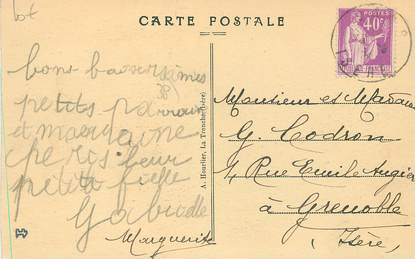 Lot
CARTE POSTALE
POSTES
40c
bons baisers mes
petits parrain
et marraine
cheris leur
petite fille
Gabrielle
Marguerite
A. Hourlier, La Tronche (Isère)
Monsieur et Madame
G. Codron
4 Rue Emile Augier
à Grenoble
(Isère)